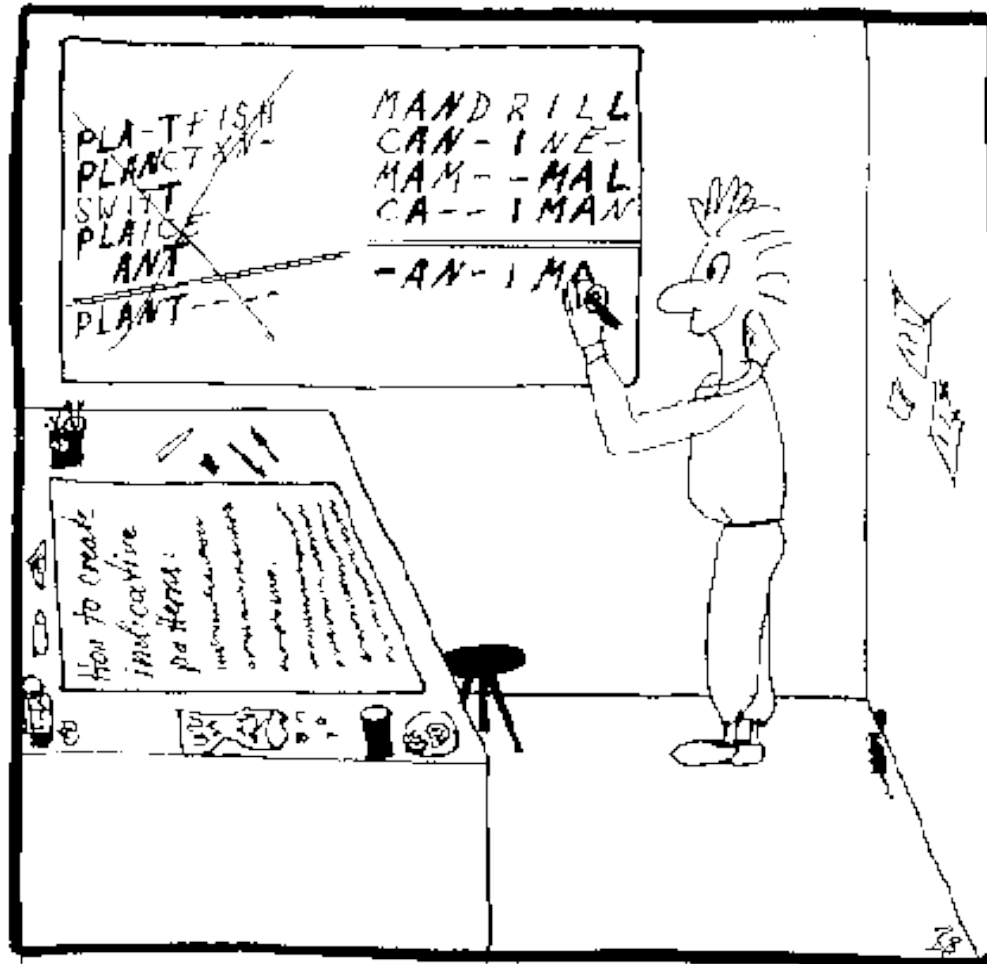 PLA-TFISH
PLANCTXN-
SWITT
PLAICE
ANT
PLANT----
MANDRILL
CAN-INE-
MAM--MAL
CA--IMAN
-AN-IMA
How to create
indicative
patterns: